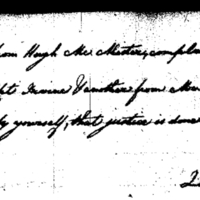 om Hugh Mc Mister, compla
pt Irvine & another from Mc
ly yourself, that justice is done